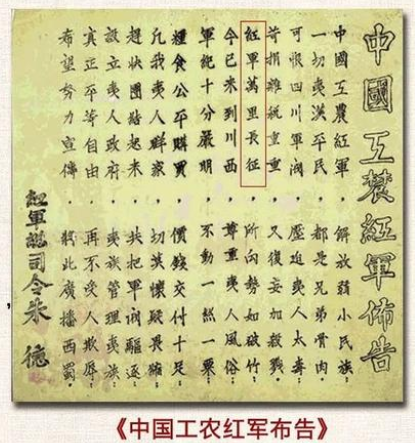 中國工農紅軍佈告
中國工農紅軍，解放弱小民族；
一切夷漢平民，都是兄弟骨肉。
可恨四川軍閥，壓迫夷人太毒；
苛捐雜稅重重，又復妄加殺戮。
紅軍萬里長征，所向勢如破竹；
今已來到川西，尊重夷人風俗。
軍紀十分嚴明，不動一絲一粟；
糧食公平購買，價錢交付十足。
凡我夷人群眾，切莫懷疑畏縮；
趕快團結起來，共把軍閥驅逐。
設立夷人政府，夷族管理夷族；
真正平等自由，再不受人欺辱。
希望努力宣傳，將此廣播西蜀。
紅軍總司令朱德
《中国工农红军布告》